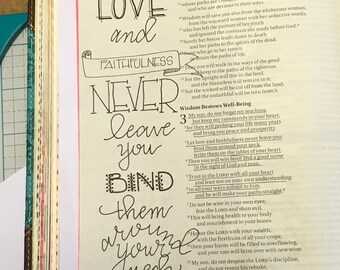 LOVE
and
FAITHFULNESS
NEVER
leave
you
BIND
them
around
your
neck
whose paths are crooked
and who are devious in their ways.
Wisdom will save you also from the adulterous woman,
from the wayward woman with her seductive words,
who has left the partner of her youth
and ignored the covenant she made before God.
Surely her house leads down to death
and her paths to the spirits of the dead.
or attain the paths of life.
Thus you will walk in the ways of the good
and keep to the paths of the righteous.
For the upright will live in the land,
and the blameless will remain in it;
but the wicked will be cut off from the land,
and the unfaithful will be torn from it.
Wisdom Bestows Well-Being
3 My son, do not forget my teaching,
but keep my commands in your heart,
for they will prolong your life many years
and bring you peace and prosperity.
Let love and faithfulness never leave you;
bind them around your neck,
write them on the tablet of your heart.
Then you will win favor and a good name
in the sight of God and man.
Trust in the LORD with all your heart
and lean not on your own understanding;
in all your ways submit to him,
and he will make your paths straight.
Do not be wise in your own eyes;
fear the LORD and shun evil.
This will bring health to your body
and nourishment to your bones.
Honor the LORD with your wealth,
with the firstfruits of all your crops;
then your barns will be filled to overflowing,
and your vats will brim over with new wine.
My son, do not despise the LORD's discipline,
and do not resent his rebuke,